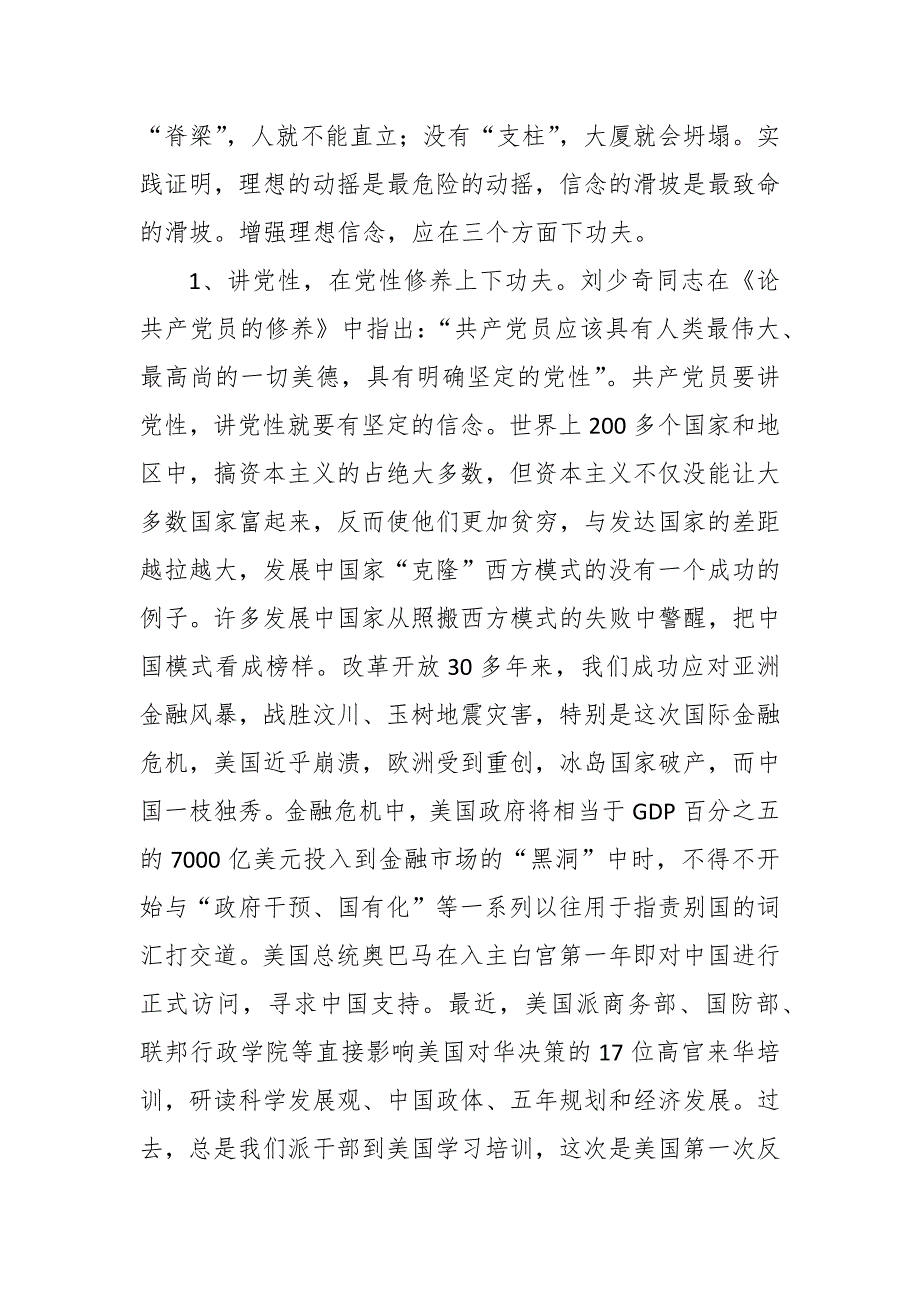 “脊梁”，人就不能直立；没有“支柱”，大厦就会坍塌。实
践证明，理想的动摇是最危险的动摇，信念的滑坡是最致命
的滑坡。增强理想信念，应在三个方面下功夫。
1、讲党性，在党性修养上下功夫。刘少奇同志在《论
共产党员的修养》中指出：“共产党员应该具有人类最伟大、
最高尚的一切美德，具有明确坚定的党性”。共产党员要讲
党性，讲党性就要有坚定的信念。世界上 200 多个国家和地
区中，搞资本主义的占绝大多数，但资本主义不仅没能让大
多数国家富起来，反而使他们更加贫穷，与发达国家的差距
越拉越大，发展中国家“克隆”西方模式的没有一个成功的
例子。许多发展中国家从照搬西方模式的失败中警醒，把中
国模式看成榜样。改革开放 30 多年来，我们成功应对亚洲
金融风暴，战胜汶川、玉树地震灾害，特别是这次国际金融
危机，美国近乎崩溃，欧洲受到重创，冰岛国家破产，而中
国一枝独秀。金融危机中，美国政府将相当于 GDP 百分之五
的 7000 亿美元投入到金融市场的“黑洞”中时，不得不开
始与“政府干预、国有化”等一系列以往用于指责别国的词
汇打交道。美国总统奥巴马在入主白宫第一年即对中国进行
正式访问，寻求中国支持。最近，美国派商务部、国防部、
联邦行政学院等直接影响美国对华决策的 17 位高官来华培
训，研读科学发展观、中国政体、五年规划和经济发展。过
去，总是我们派干部到美国学习培训，这次是美国第一次反